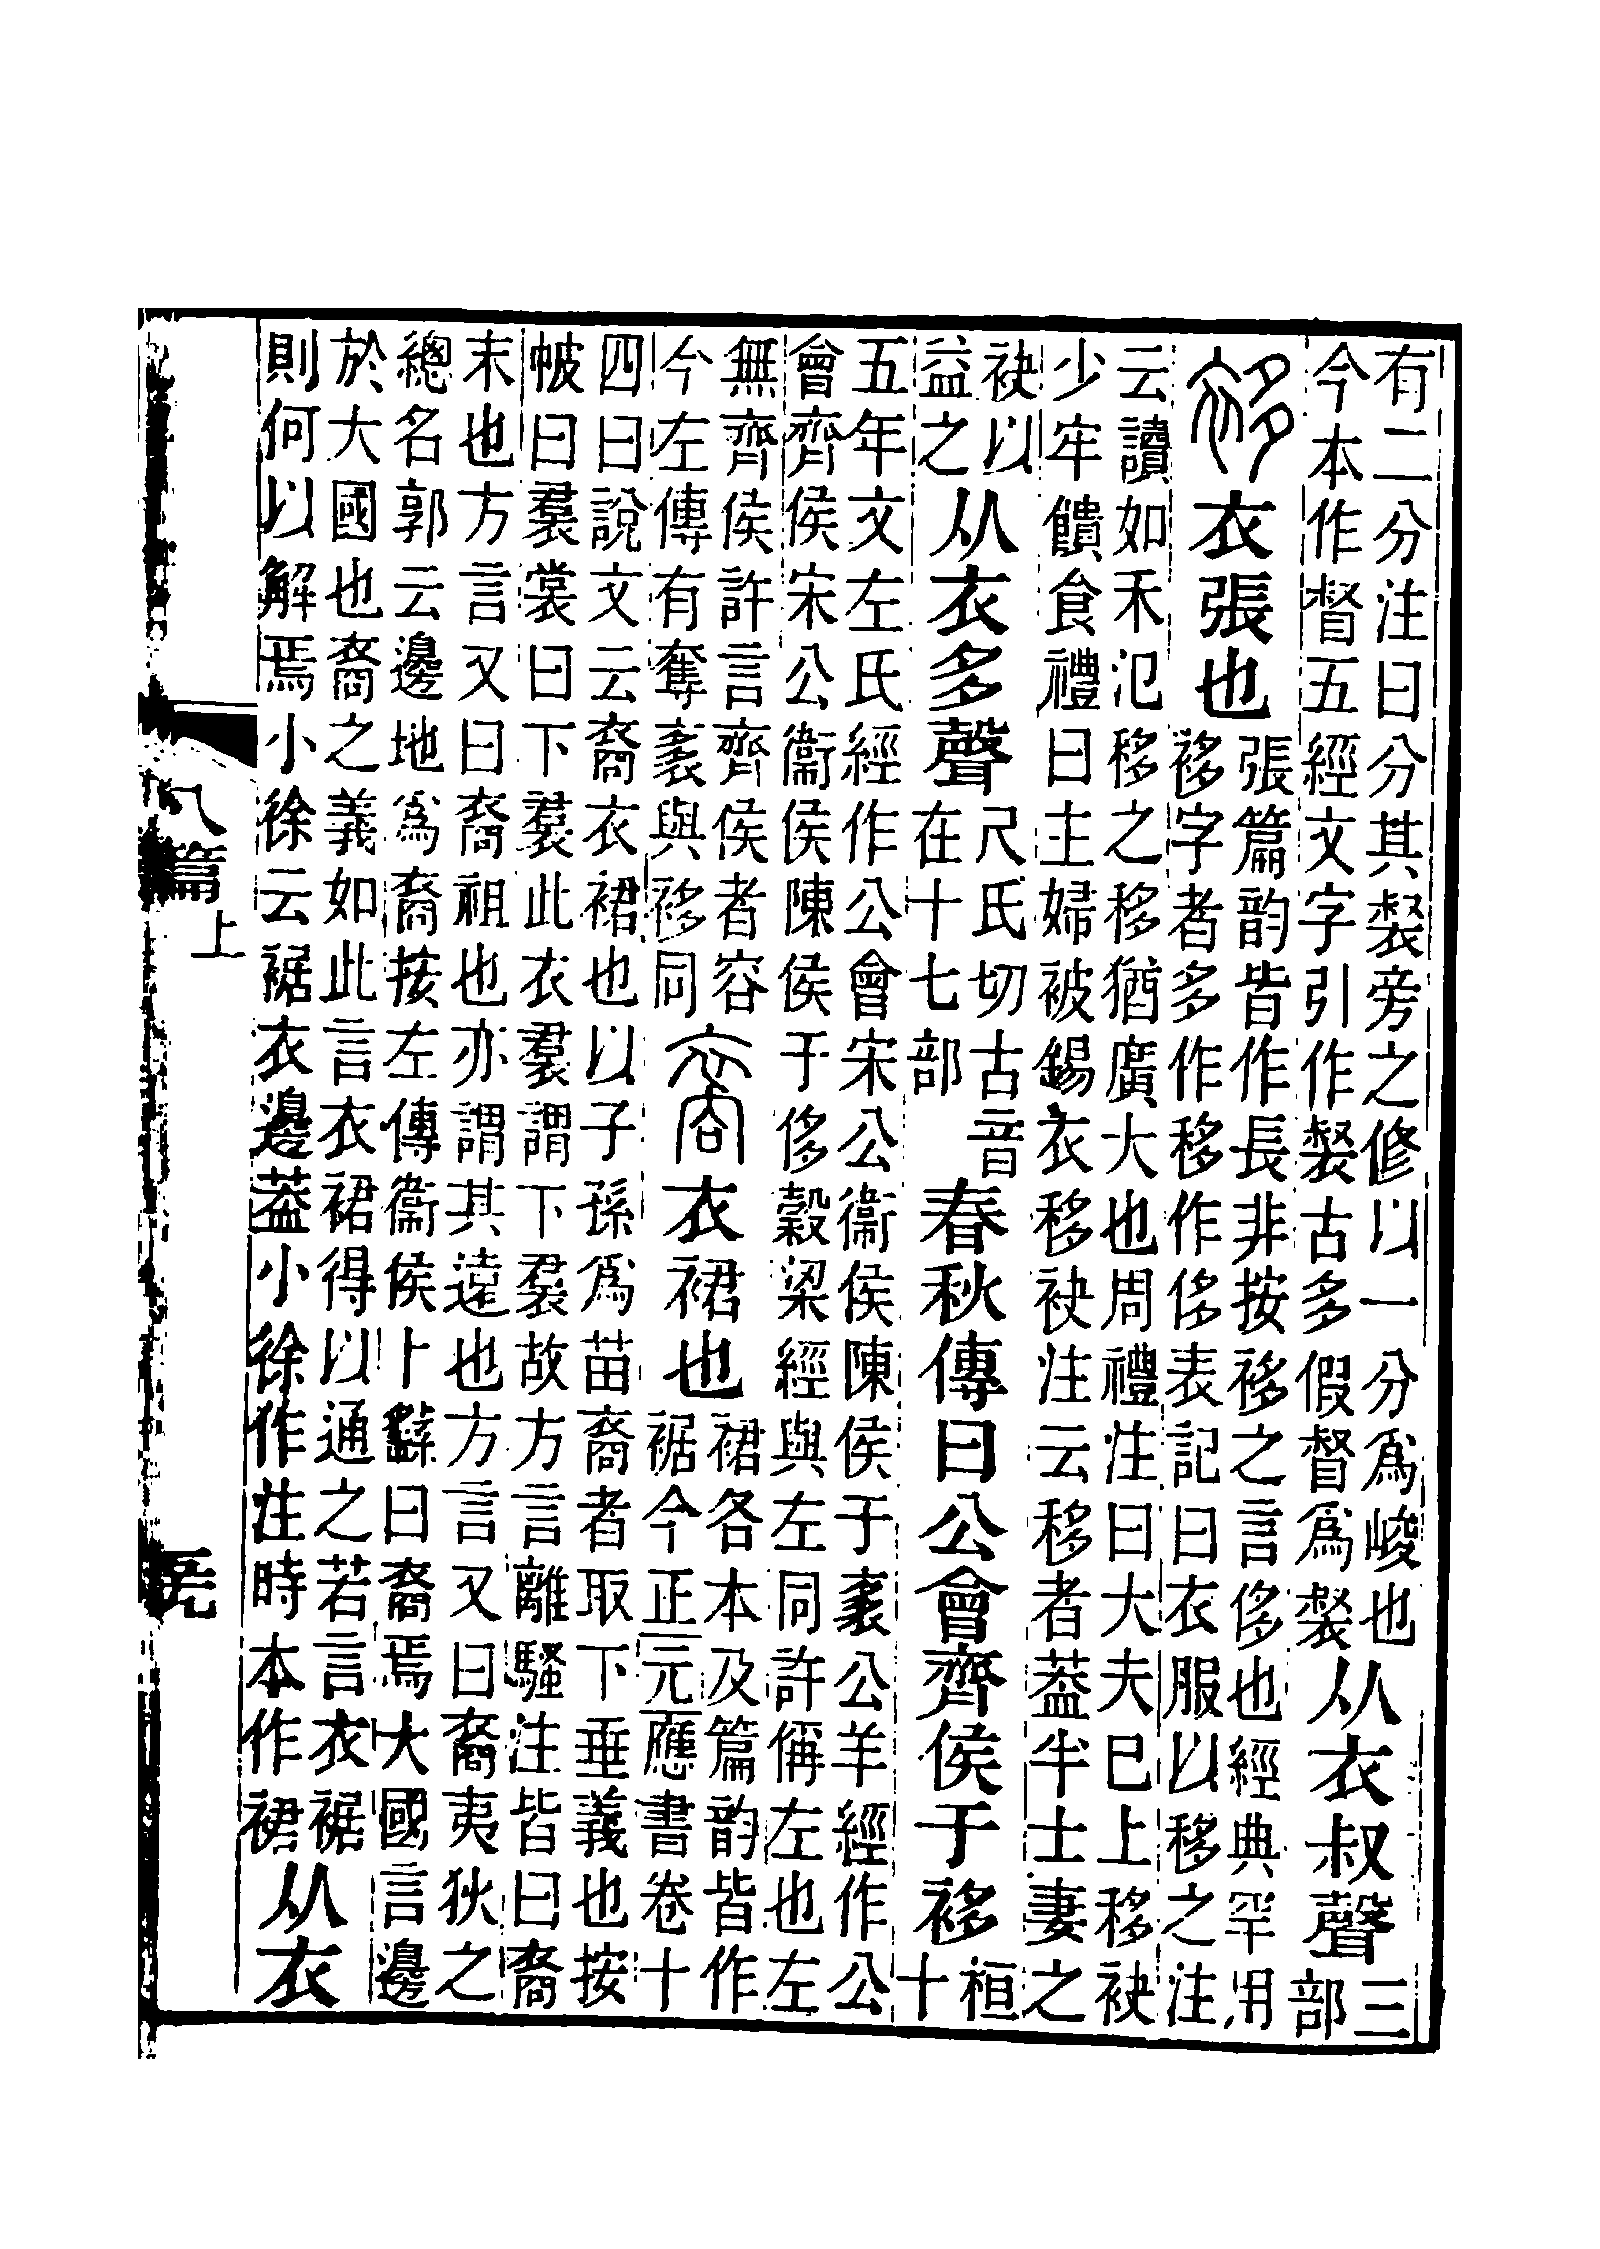 有二分注曰分其裻旁之修以一分爲峻也今本作督五經文字引作裻古多假督爲裻从衣叔聲三部
袳衣張也張篇韵皆作長非按袳之言侈也經典罕用袳字者多作移作侈表記曰衣服以移之注
云讀如禾氾移之移移猶廣大也周禮注曰大夫巳上移袂少牢饋食禮曰主婦被錫衣移袂注云移者葢半士妻之
袂以益之从衣多聲尺氏切古音在十七部春秋傳曰公會齊侯于袳桓十
五年文左氏經作公會宋公衞侯陳侯于袲公羊經作公會齊侯宋公衞侯陳侯于侈穀梁經與左同許偁左也左
無齊侯許言齊侯者容今左傳有奪袲與袳同裔衣裙也裙各本及篇韵皆作裾今正元應書卷十
四曰說文云裔衣裙也以子孫爲苗裔者取下垂義也按帔曰裠裳曰下裠此衣裠謂下裠故方言離騷注皆曰裔
末也方言又曰裔祖也亦謂其遠也方言又曰裔夷狄之總名郭云邊地爲裔按左傳衞侯卜繇曰裔焉大國言邊
於大國也裔之義如此言衣裙得以通之若言衣裾則何以解焉小徐云裾衣邊葢小徐作注時本作裙从衣
八篇上